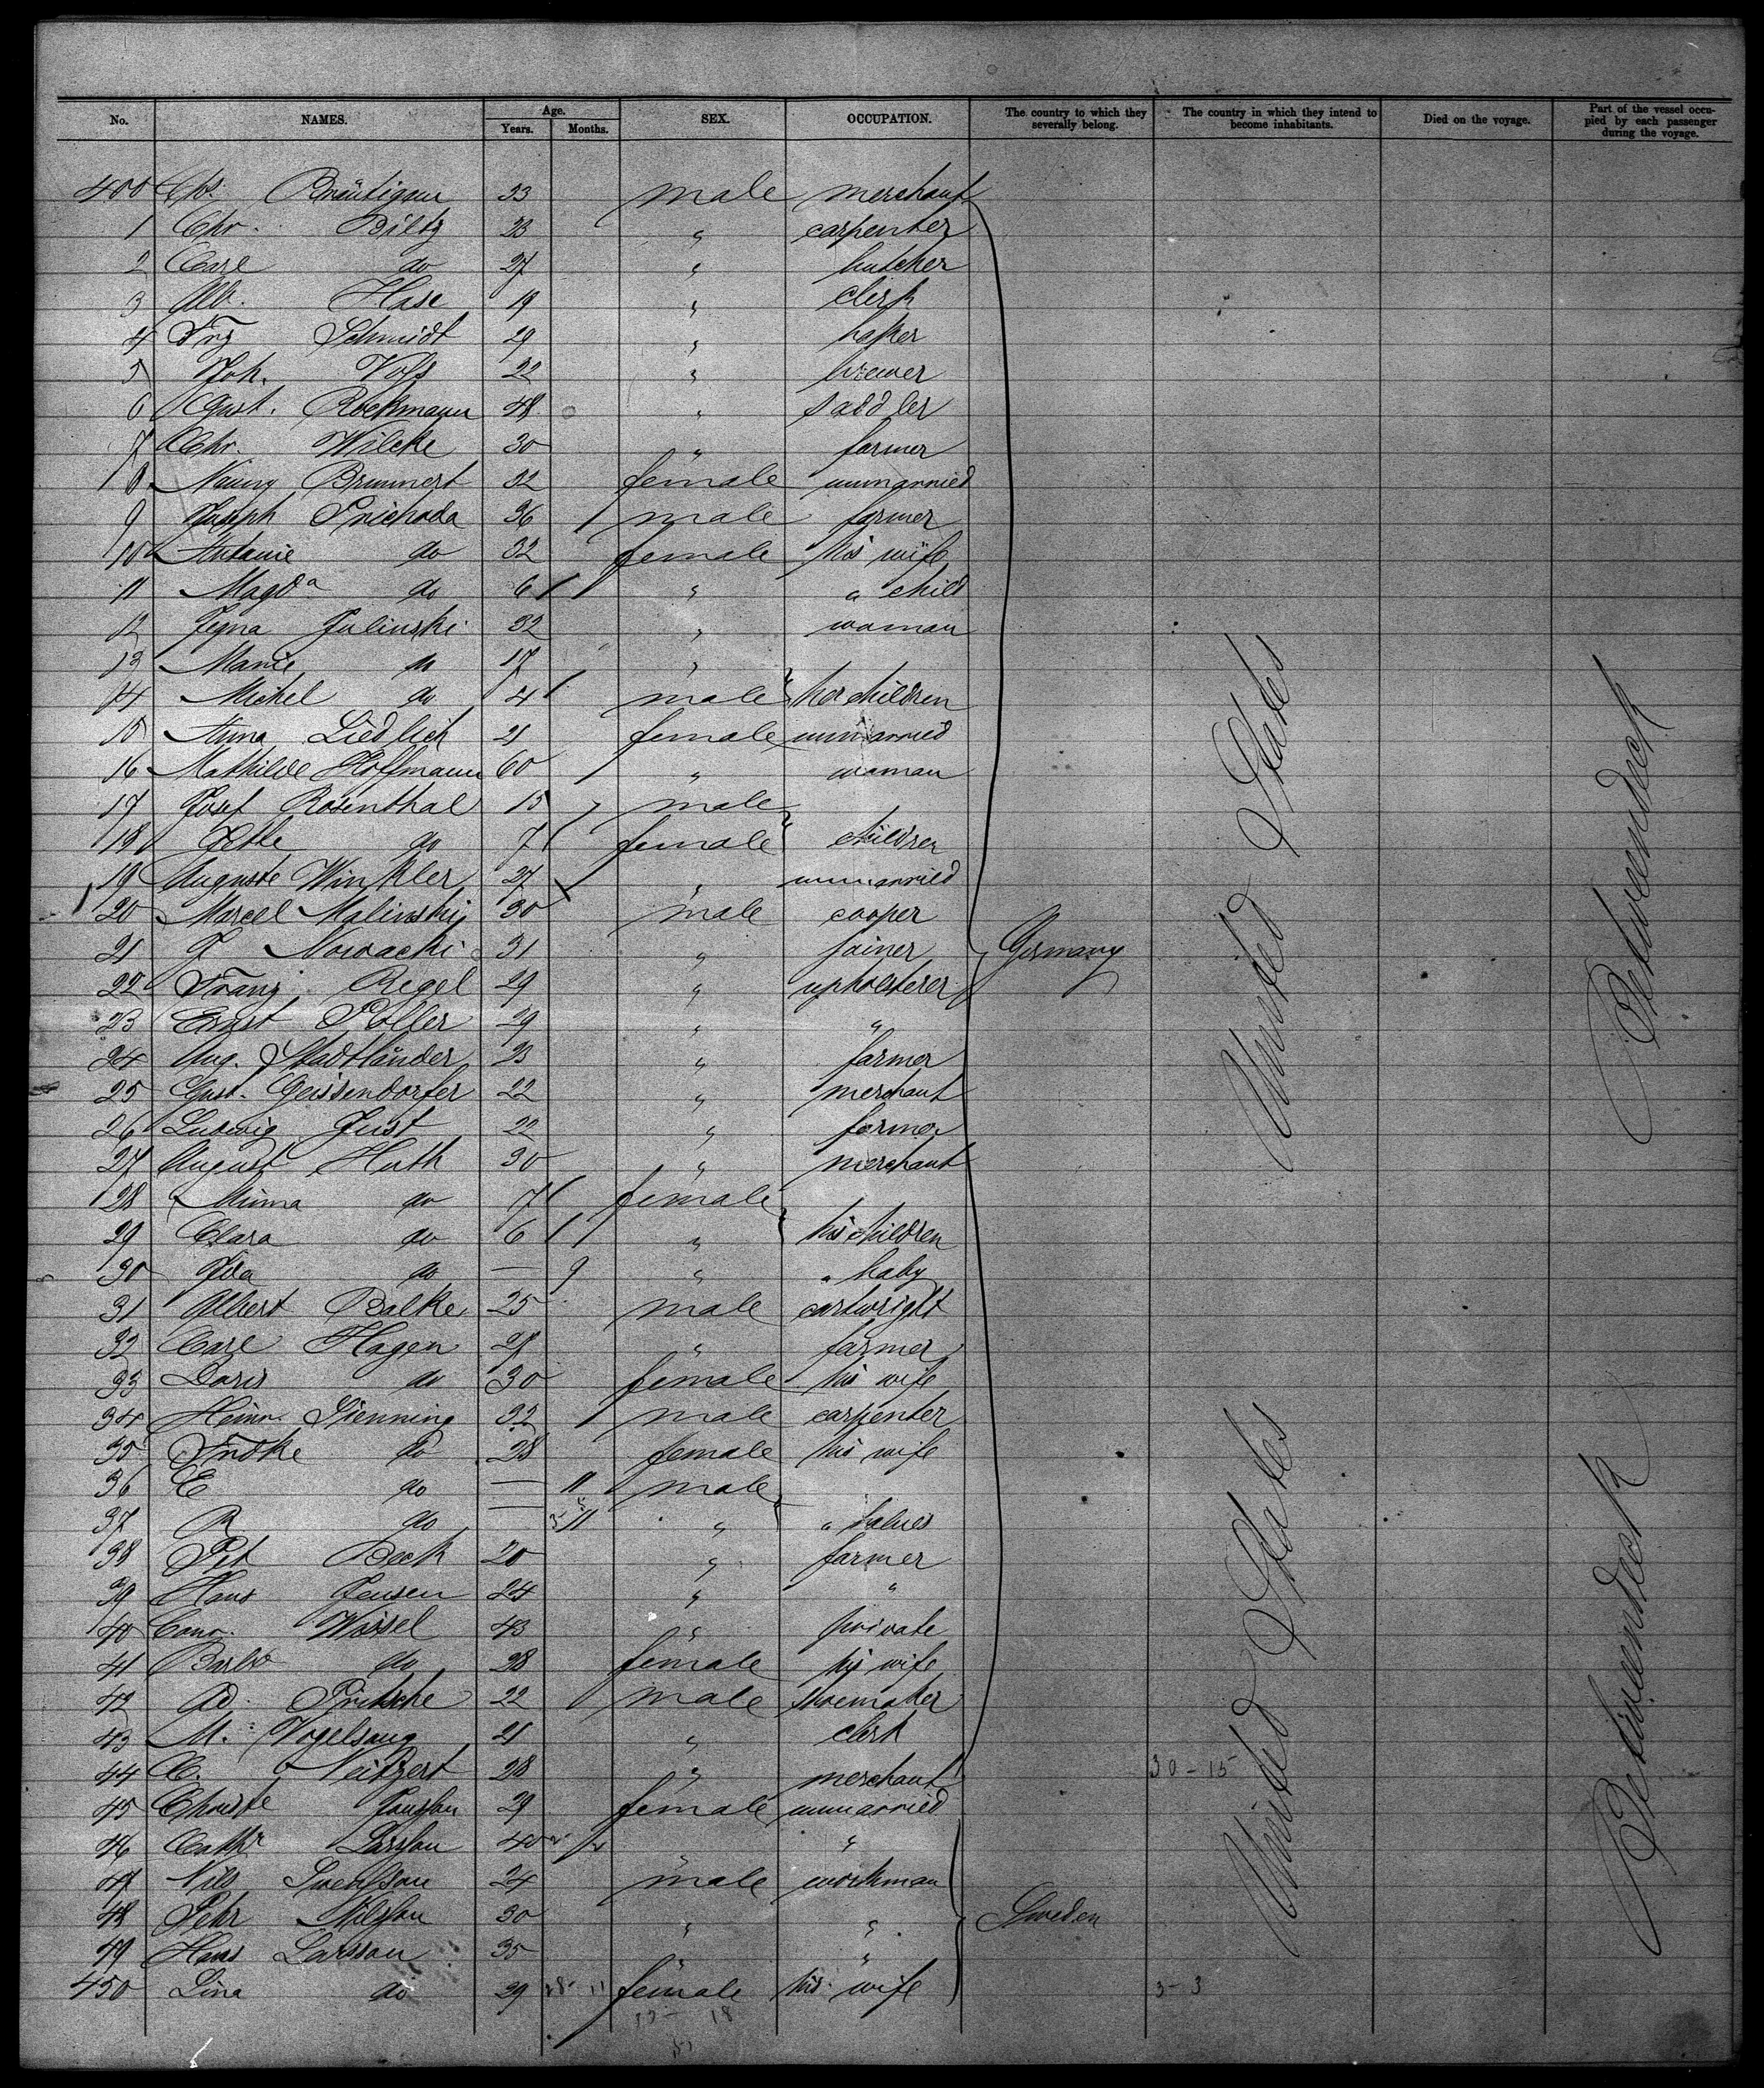 No. NAMES. Age. Years. Months. SEX. OCCUPATION. The country to which they severally belong. The country in which they intend to become inhabitants. Died on the voyage. Part of the vessel occupied by each passenger during the voyage.
400 Bräutigam 33 male merchant
1 Chr. Biltz 23 " carpenter
2 Carl do 27 " butcher
3 Alb. Hase 19 " clerk
4 Frz Schmidt 29 " baker
5 Joh. Voss 22 " brewer
6 Gust. Rockmann 48 " saddler
7 Chr. Wilcke 30 " farmer
8 Nanny Brunnert 32 female unmarried
9 Joseph Prichoda 36 male farmer
10 Antonie do 32 female his wife
11 Magda do 6 " " child
12 Julinski 32 " woman
13 Marie do 17 "
14 Michel do 4 male her children
15 Anna Liedlich 21 female unmarried
16 Mathilde Hoffmann 60 " woman
17 Josef Rosenthal 15 male
18 do 7 female children
19 Auguste Winkler 27 " unmarried
20 Marcel Malinskij 30 male cooper
21 J Nowacki 31 " joiner Germany
22 Franz Regel 29 " upholsterer
23 Ernst Poller 29 " "
24 Aug. Stadtländer 23 " farmer
25 Gust. Geissendorfer 22 " merchant
26 Ludwig Just 22 " farmer
27 August Huth 30 " merchant
28 Minna do 7 female
29 Clara do 6 " his children
30 Ida do — 9 " " baby
31 Albert Balke 25 male cartwright
32 Carl Hagen 28 " farmer
33 Doris do 30 female his wife
34 Heinr. Pienning 32 male carpenter
35 do 28 female his wife
36 E do — 11 male
37 R do — 11 " " babies
38 Pet Beck 20 " farmer
39 Hans Jensen 24 " "
40 Conr. Wissel 43 " private
41 Barb. do 28 female his wife
42 Ad. Fritsche 22 male shoemaker
43 M. Vogelsang 21 " clerk
44 C. Neitzert 28 " merchant 30-15
45 29 female unmarried
46 Larsson 40 " "
47 Nils Svensson 24 male workman
48 Pehr Nilsson 30 " " Sweden
49 Hans Larsson 35 " "
450 Lina do 29 female his wife 3-3
United States
United States
Betweendeck
Betweendeck